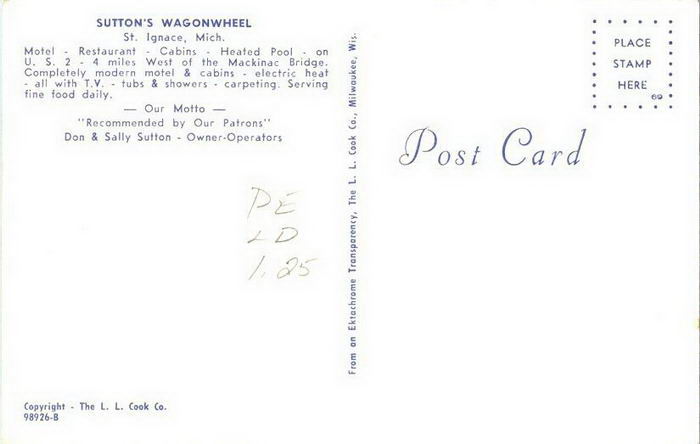 SUTTON'S WAGONWHEEL
St. Ignace, Mich.
Motel - Restaurant - Cabins - Heated Pool - on
U. S. 2 - 4 miles West of the Mackinac Bridge.
Completely modern motel & cabins - electric heat
- all with T.V. - tubs & showers - carpeting. Serving
fine food daily.
— Our Motto —
"Recommended by Our Patrons"
Don & Sally Sutton - Owner-Operators
DE
LD
1.25
Copyright - The L. L. Cook Co.
98926-B
From an Ektachrome Transparency, The L. L. Cook Co., Milwaukee, Wis.
Post Card
PLACE
STAMP
HERE
69